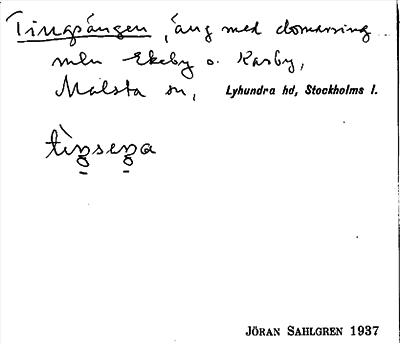 Tingsängen, äng med domarring
mln Ekeby o. Karby,
Malsta sn, Lyhundra hd, Stockholms l.
JÖRAN SAHLGREN 1937